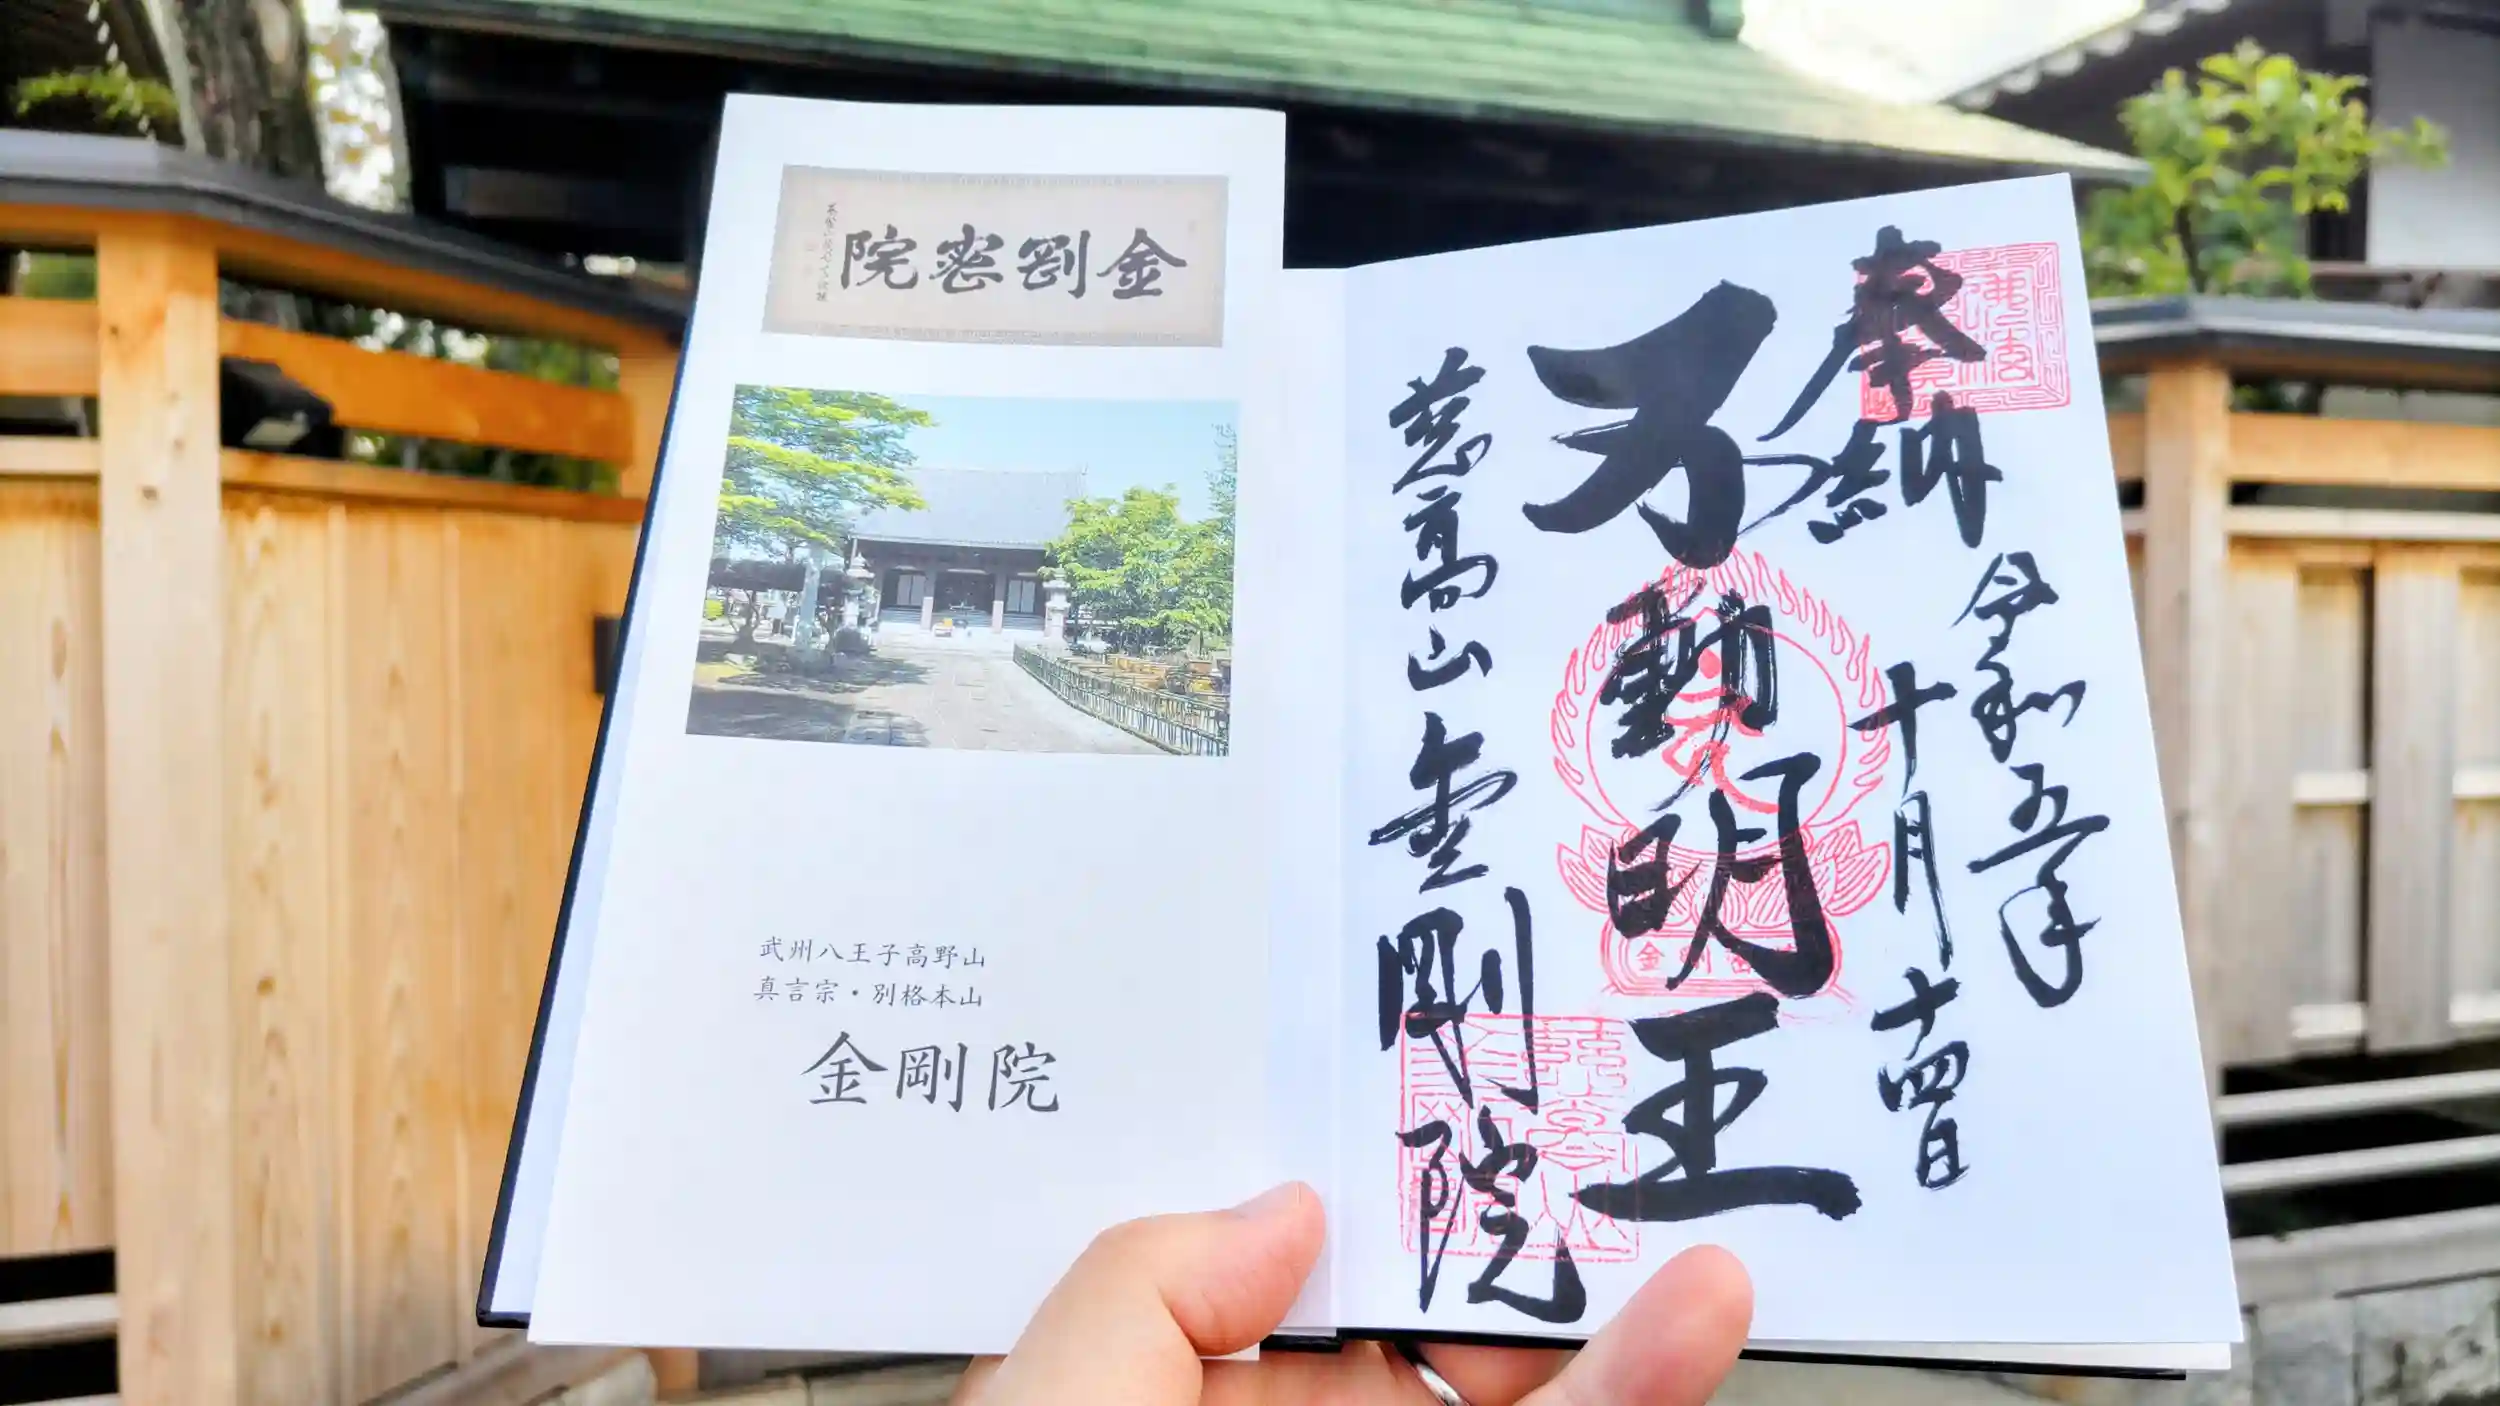 院密剛金
武州八王子高野山
真言宗・別格本山
金剛院
奉納
令和五年
十月十四日
不動明王
慈高山金剛院